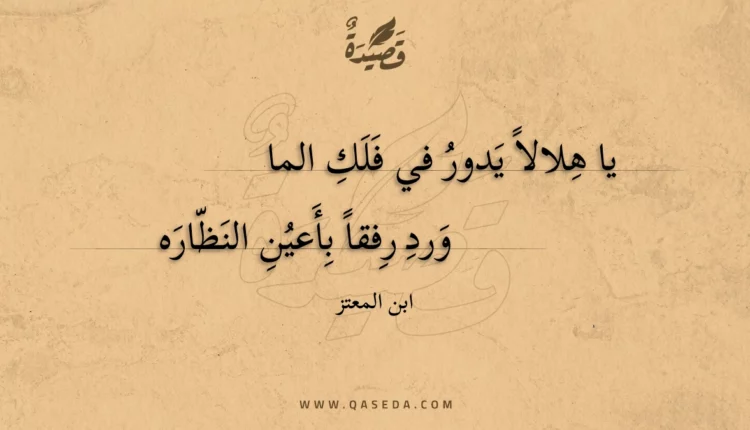 قَصِيْدَةٌ
يا هِلالاً يَدورُ في فَلَكِ الما
وَردِ رِفقاً بِأَعيُنِ النَظّارَه
ابن المعتز
WWW.QASEDA.COM